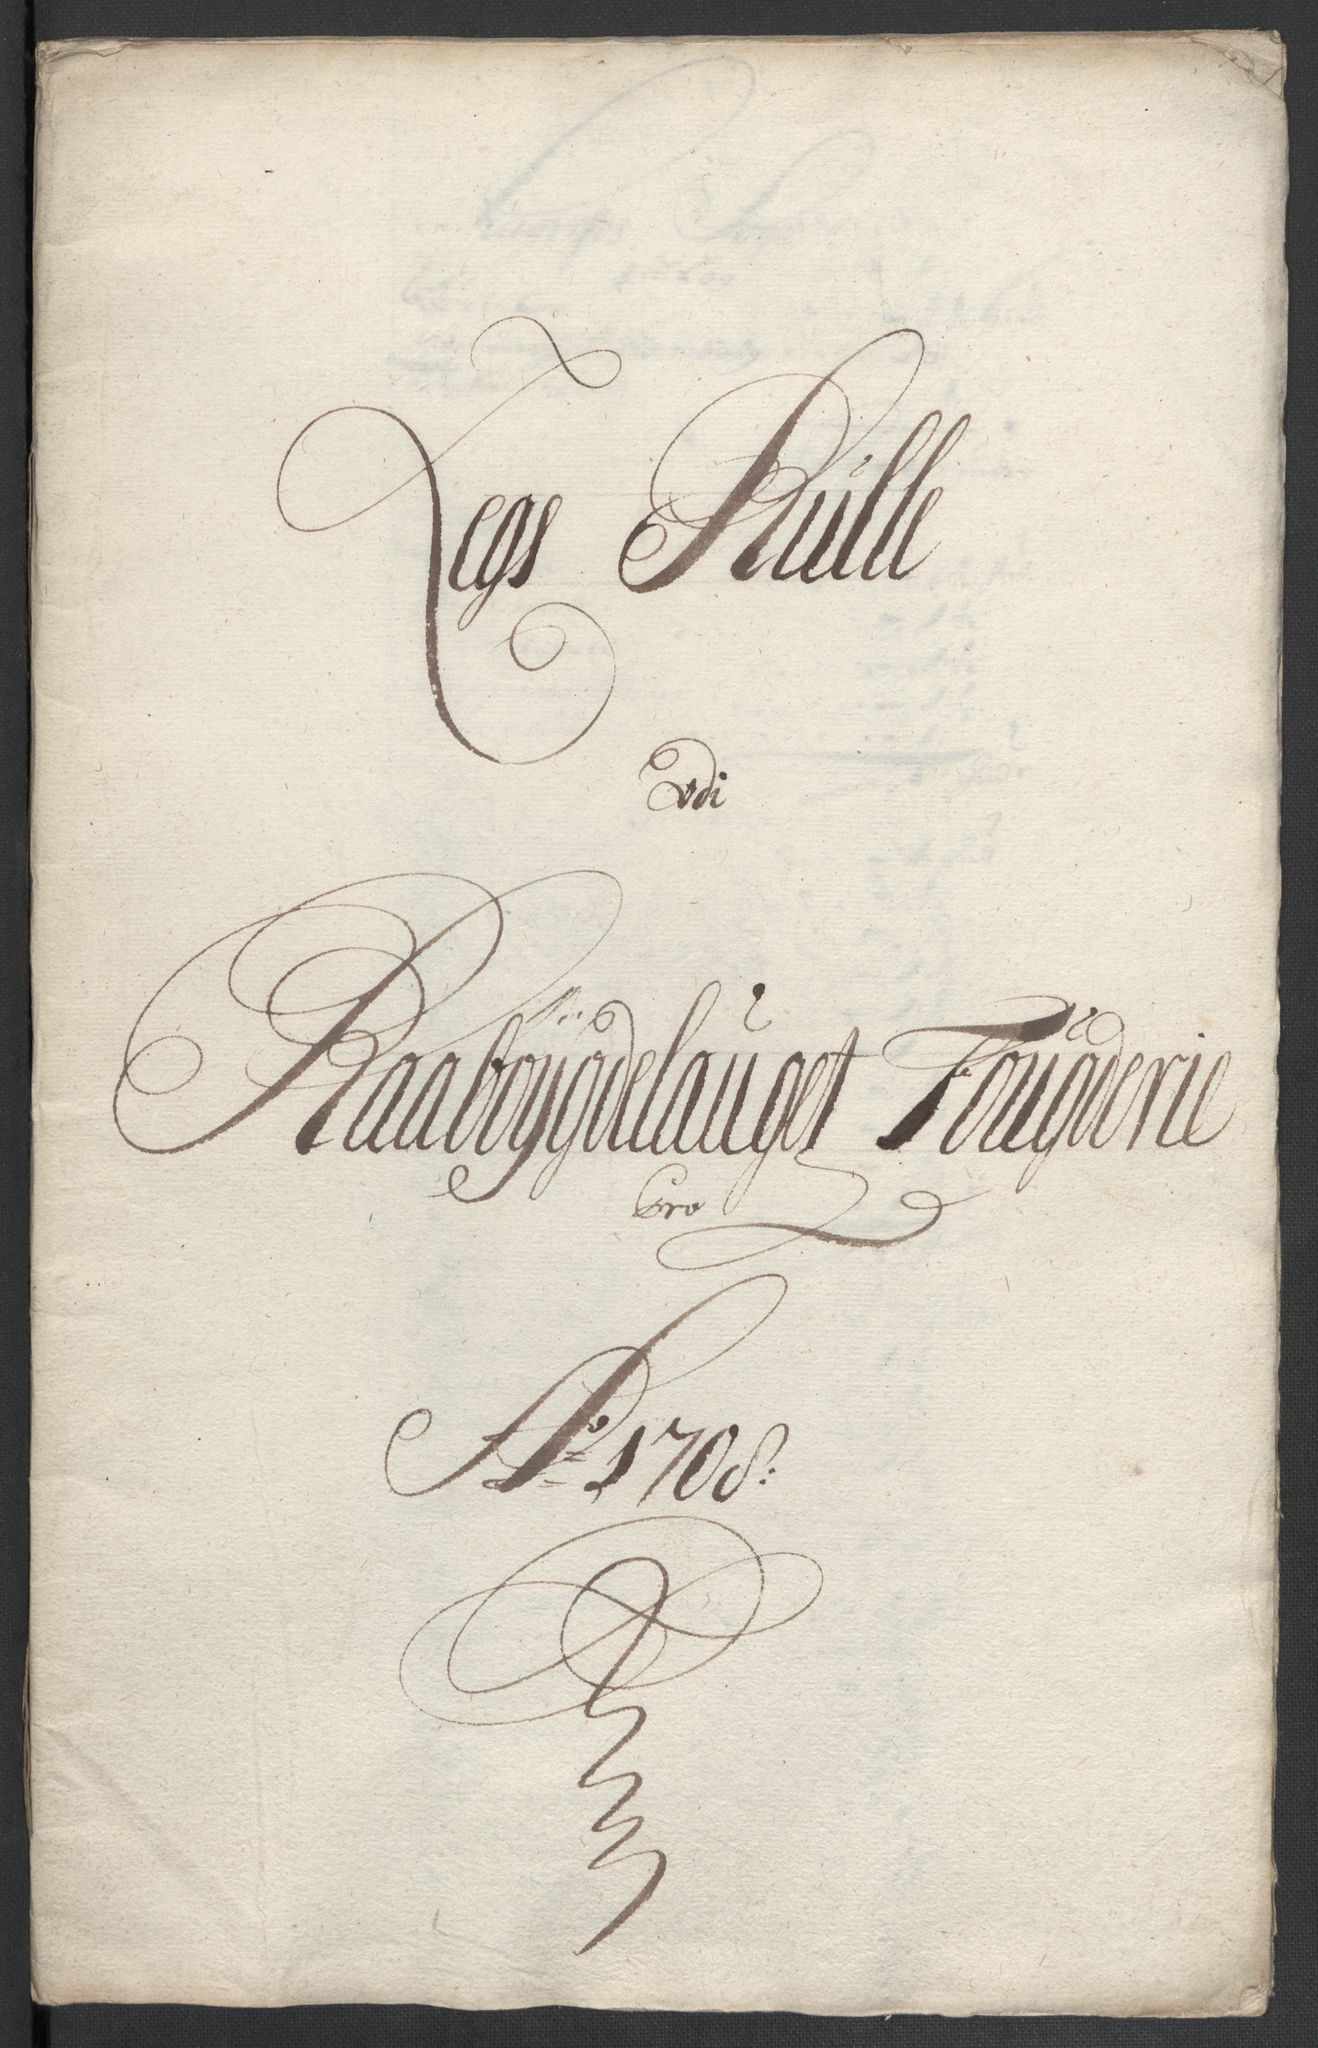 Legs Rulle
Udi
Raabøÿgdelauget Fougderie
Pro
Ao 1708: